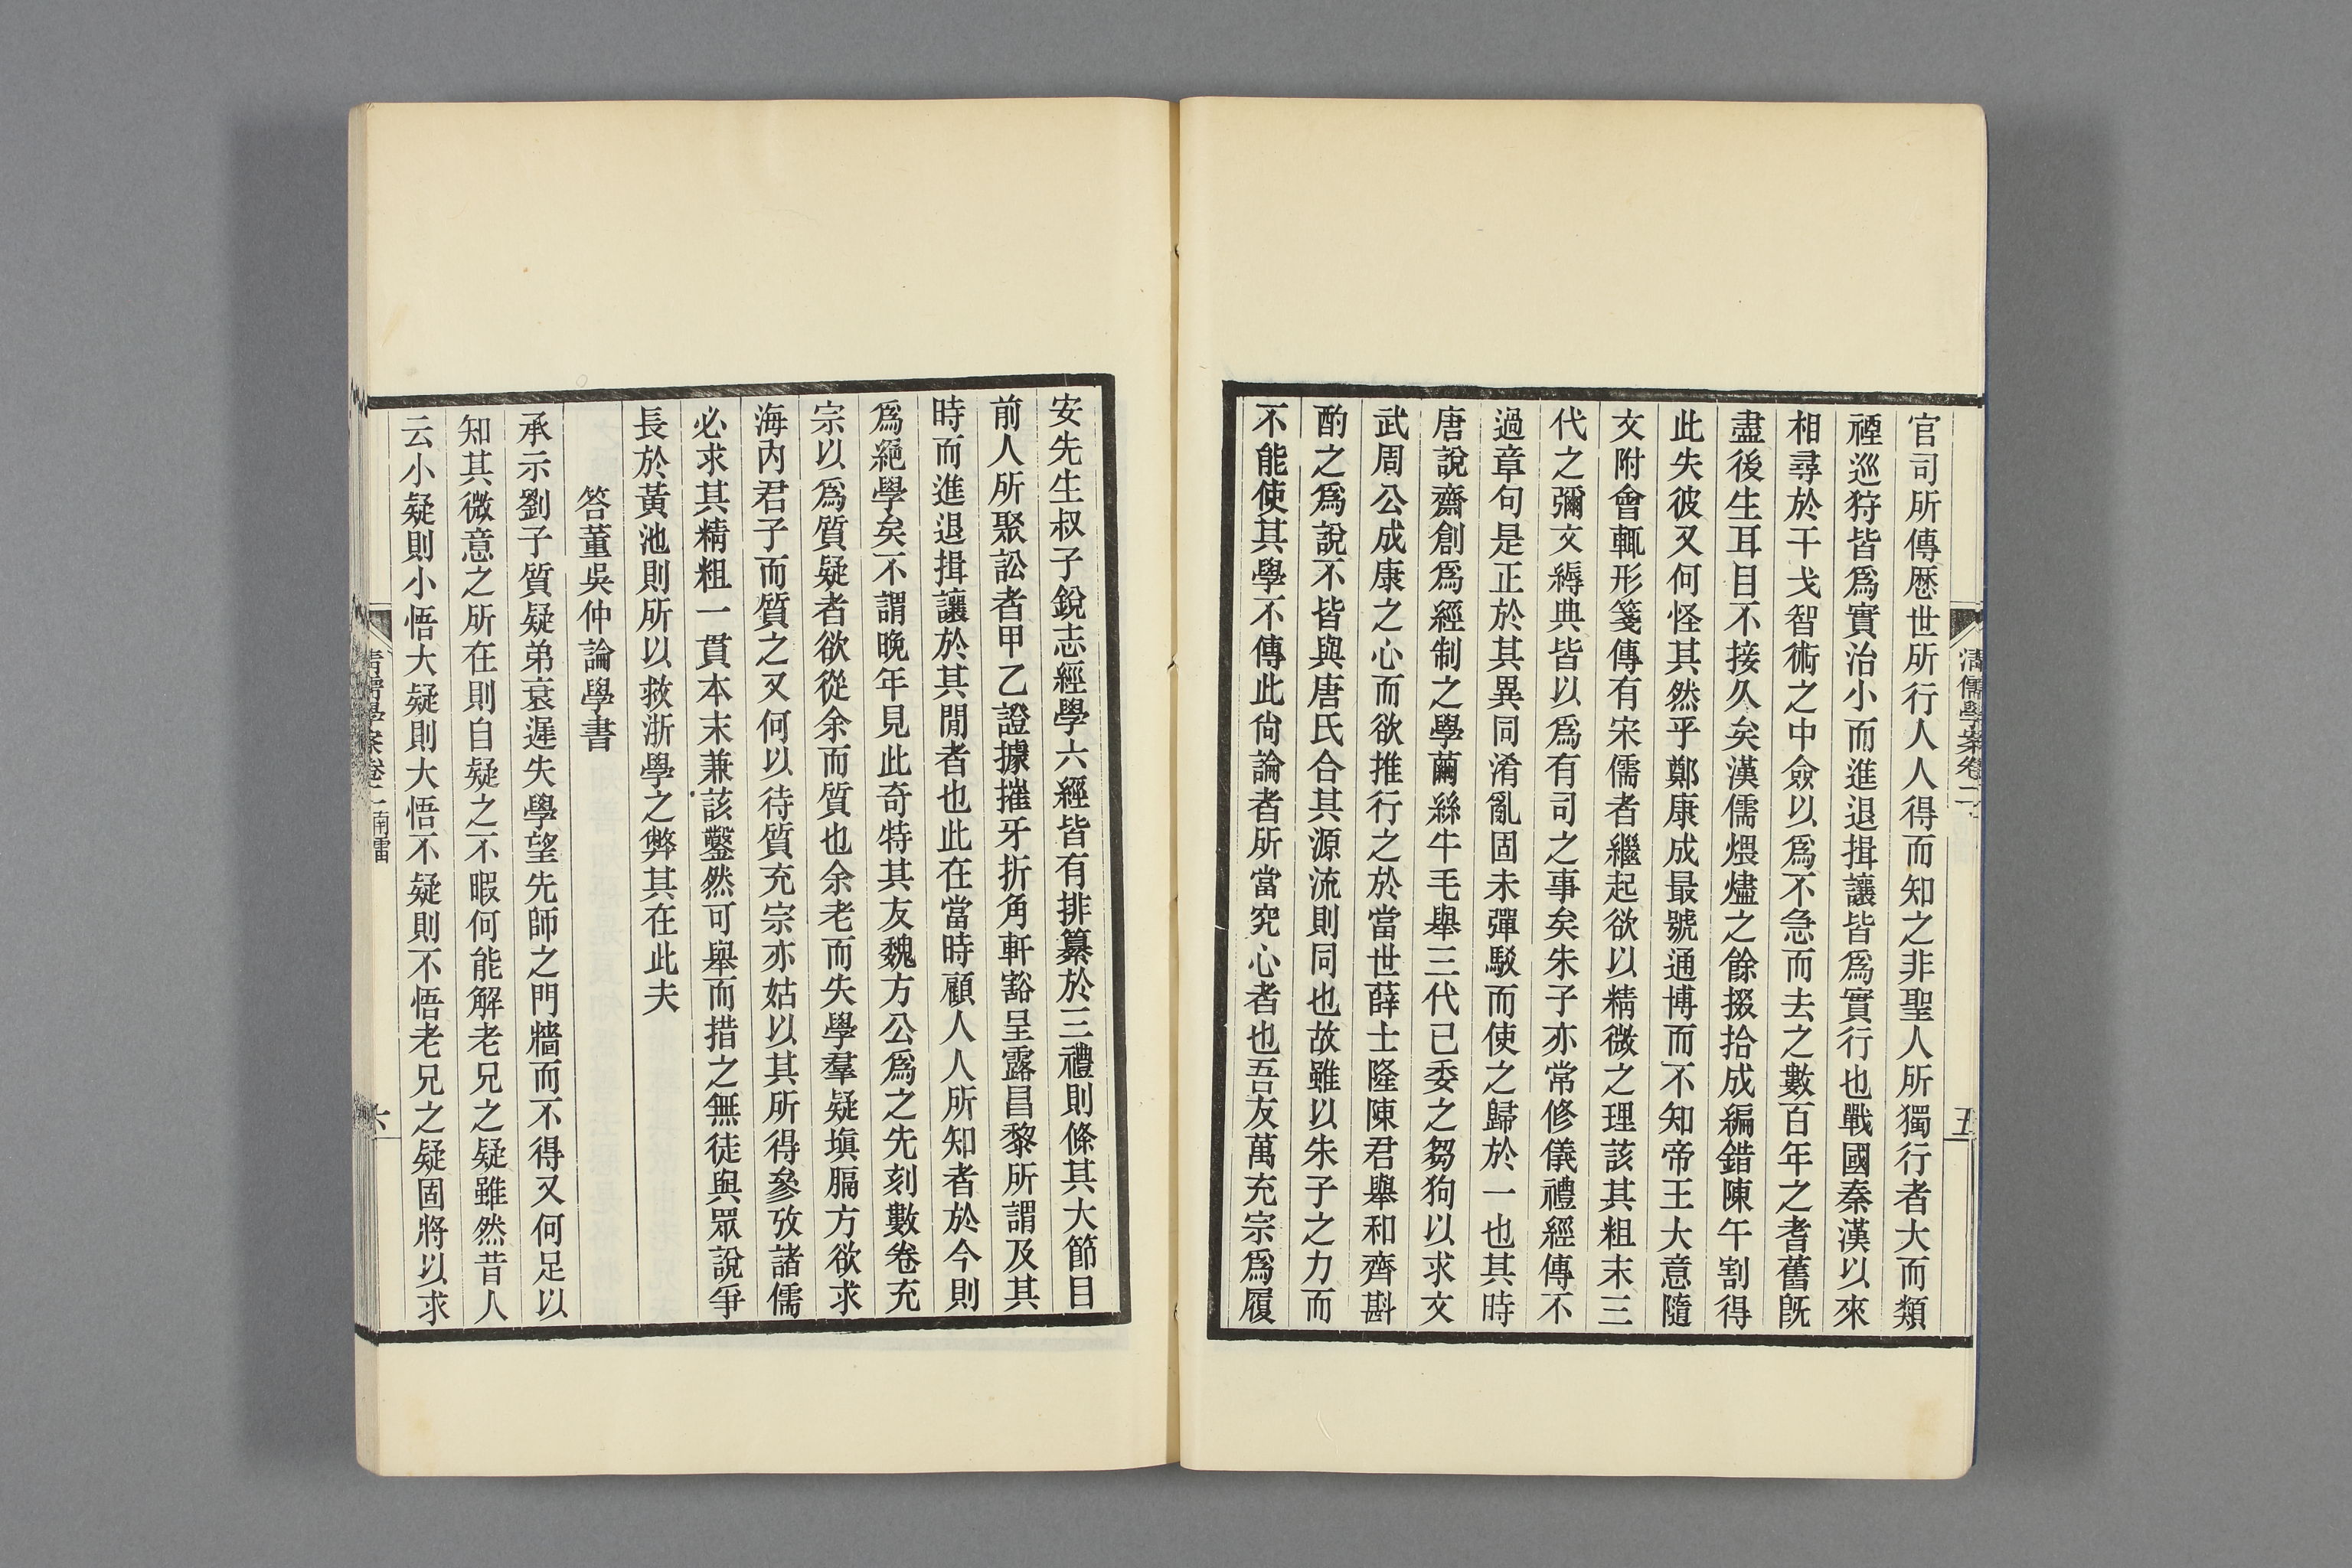 清儒學案卷二
五
官司所傳歷世所行人人得而知之非聖人所獨行者大而類
禋巡狩皆爲實治小而進退揖讓皆爲實行也戰國秦漢以來
相尋於干戈智術之中僉以爲不急而去之數百年之耆舊旣
盡後生耳目不接久矣漢儒煨燼之餘掇拾成編錯陳午割得
此失彼又何怪其然乎鄭康成最號通博而不知帝王大意隨
文附會輒形箋傳有宋儒者繼起欲以精微之理該其粗末三
代之彌文縟典皆以爲有司之事矣朱子亦常修儀禮經傳不
過章句是正於其異同淆亂固未彈駁而使之歸於一也其時
唐說齋創爲經制之學繭絲牛毛舉三代已委之芻狗以求文
武周公成康之心而欲推行之於當世薛士隆陳君舉和齊斟
酌之爲說不皆與唐氏合其源流則同也故雖以朱子之力而
不能使其學不傳此尙論者所當究心者也吾友萬充宗爲履
安先生叔子銳志經學六經皆有排纂於三禮則條其大節目
前人所聚訟者甲乙證據摧牙折角軒豁呈露昌黎所謂及其
時而進退揖讓於其閒者也此在當時顧人人所知者於今則
爲絕學矣不謂晚年見此奇特其友魏方公爲之先刻數卷充
宗以爲質疑者欲從余而質也余老而失學羣疑塡膈方欲求
海內君子而質之又何以待質充宗亦姑以其所得參攷諸儒
必求其精粗一貫本末兼該鑿然可舉而措之無徒與眾說爭
長於黃池則所以救浙學之弊其在此夫
答董吳仲論學書
承示劉子質疑弟衰遲失學望先師之門牆而不得又何足以
知其微意之所在則自疑之不暇何能解老兄之疑雖然昔人
云小疑則小悟大疑則大悟不疑則不悟老兄之疑固將以求
清儒學案卷二南雷
六